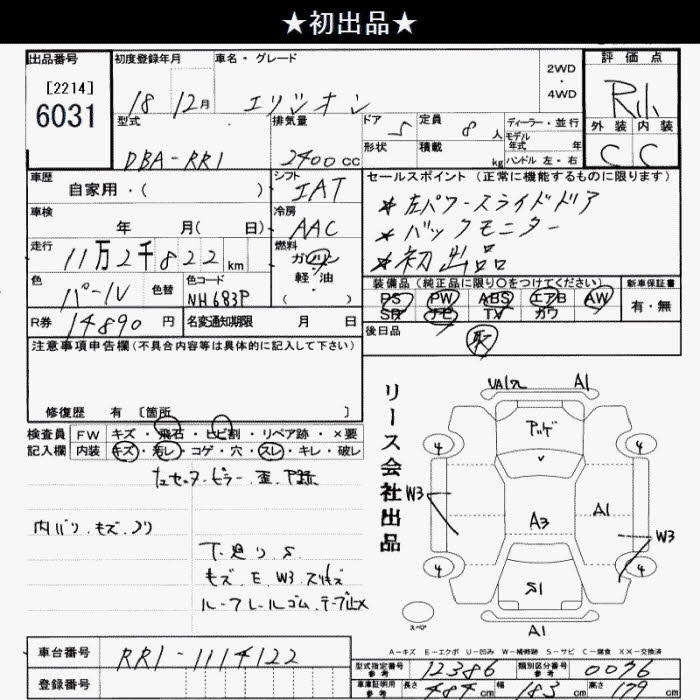 ★初出品★
出品番号
[2214]
6031
初度登録年月
18 12月
車名・グレード
エリシオン
2WD
・
4WD
評価点
外装 内装
C C
型式
DBA-RR1
排気量
2400cc
ドア 5
形状
定員 8人
積載 kg
ディーラー・並行
モデル
年式 年
ハンドル 左・右
車歴
自家用・( )
シフト
IAT
車検
年 月( 日)
冷房
AAC
走行
11万2千822km
燃料
ガソリン
軽・油
( )
色
パール
色替
色コード
NH683P
R券 14890円
名変通知期限 月 日
セールスポイント (正常に機能するものに限ります)
*左パワースライドドア
*バックモニター
*初出品
装備品 (純正品に限り○をつけてください)
PS PW ABS エアB AW
SR ナビ TV カワ
新車保証書
有・無
後日品
取
注意事項申告欄(不具合内容等は具体的に記入して下さい)
修復歴 有 [箇所 ]
検査員
記入欄
FW キズ・飛石・ヒビ割・リペア跡・×要
内装 キズ・汚レ・コゲ・穴・スレ・キレ・破レ
内バリ.キズ.ソリ
下.廻り.S
キズ.E.W3.スリキズ
ルーフレールゴム.テープ止メ
リース会社出品
A1
4
4
W3
A3
A1
W3
4
4
S1
スペア
A1
A-キズ E-エクボ U-凹み W-補修跡 S-サビ C-腐食 XX-交換済
車台番号
RR1-1114122
登録番号
型式指定番号
参考
12386
類別区分番号
参考
0036
車庫証明用
参考
長さ 484cm
幅 183cm
高さ 179cm